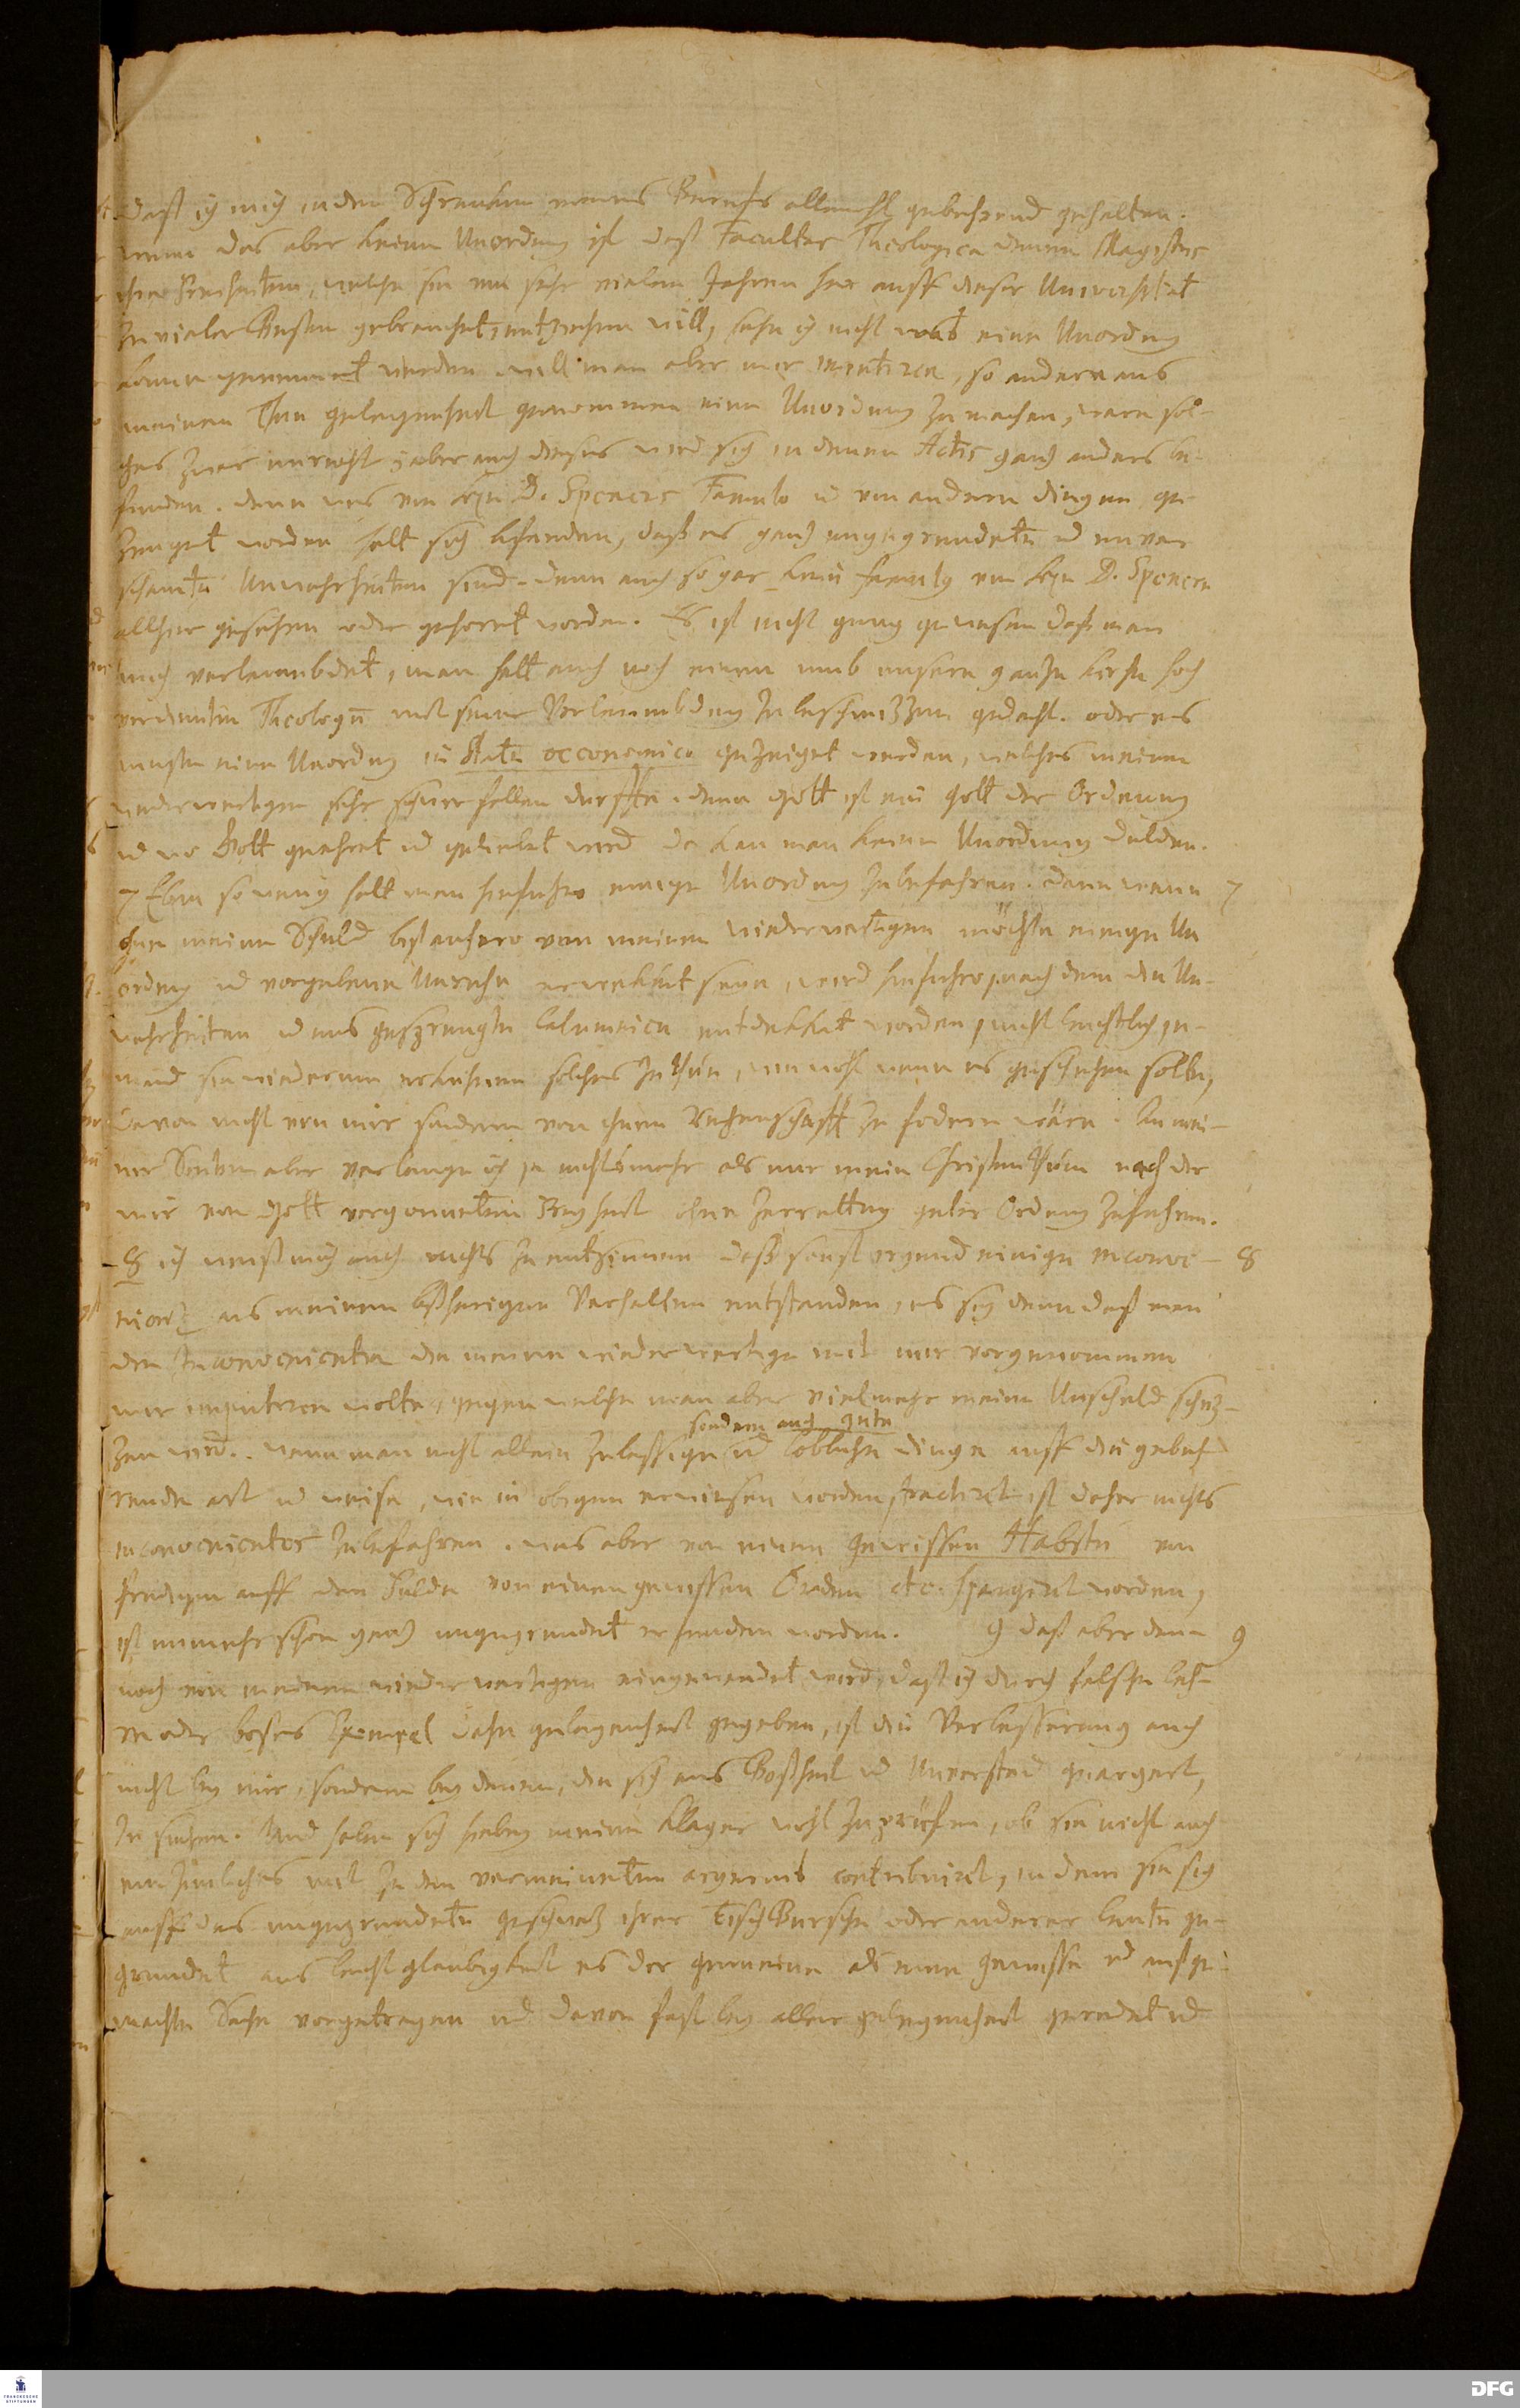 daß ich mich in den Schrancken meines Beruffs allemahl gebührend gehalten.
wenn das aber keine Unordnung ist daß Facultas Theologica denen Magistris
ihre Freiheiten, welche sie von sehr vielen Jahren her auff dieser Universitet
zu vieler Besten gebrauchet, entziehen will, sehe ich nicht was eine Unordnung
kann genennet werden will man aber mir imputiren, so andere aus
meinen Thun gelegenheit genommen eine Unordnung zu machen, ware sol-
ches zwar unrecht, aber auch dieses wird sich in denen Actis gantz anders be-
finden. denn was von Hrn D. Speners Famulo u von andern dingen ge-
zeuget worden hatt sich befunden, daß es gantz ungegrundete u unver
schamte Unwahrheiten sind. denn auch so gar kein famulus von Hrn D. Spenern
allhier gesehen oder gehoret worden. Es ist nicht genug gewesen daß man
mich verleumbdet, man hatt auch noch einen umb unsere gantze Kirche hoch
verdienten Theologū mit seiner Verleumbdung zu beschmizzen gedacht. oder es
muste eine Unordnung in Statu oeconomico gezeiget werden, welches meinen
wiederwertigen sehr schwer fallen durffte. denn Gott ist ein Gott der Ordnung
u wo Gott geehret u geliebet wird da kan man keine Unordnung dulden.
7 Eben so wenig hatt man hinfuhro einige Unordnung zubefahren. denn wenn 7
ohne meine Schuld bißanhero von meinen wiederwertigen möchte einige Un
ordnung u vorgegebene Unruhe erwekket seyn, wird hinfuhro, nach dem die Un-
wahrheiten u ausgesprengte Calumnien entdekket worden, nicht leichtlich je-
mand sie wiederum erkühnen solches zu thun, wiewohl wenn es geschehen solte,
davon nicht von mir sondern von ihnen Rechenschafft zu fodern wäre. An mei-
ner Seiten aber verlange ich ja nichts mehr als nur mein Christenthum nach der
mir von Gott vergonneten Freyheit ohne zerruttung guter Ordnung zufuhren.
8 ich weiß mich auch nichts zu entsinnen daß sonst irgend einige inconve- 8
nientz aus meinem bißherigen Verhalten entstanden, es sey denn daß man
den Inconvenientien die meine wiederwertige mit mir vorgenommen
mir imputiren wolte, gegen welche man aber vielmehr meine Unschuld schüz-
zen wird. wenn man nicht allein zulessige sondern auch gute u lobliche dinge auff die gebuh
rende art u weise, wie in obigen erwiesen worden, tractiret ist daher nichts
inconvenientes zubefahren. was aber von einem gewissen Habitu von
Predigen auff dem Felde von einen gewissen Orden etc. spargiret worden,
ist nunmehr schon gantz ungegrundet erfunden worden. 9 daß aber denn 9
noch von meinen wiederwertigen eingewendet wird, daß ich durch falsche leh-
re oder boses Exempel dazu gelegenheit gegeben, ist die Verbesserung auch
nicht bey mir, sondern bey denen, die sich aus Boßheit u Unverstand geargert,
zu suchen. Und haben sich hiebey meine Klager wohl zuprüfen, ob sie nicht auch
ein zimliches mit zu dem vermeineten argernis contribuiret, in dem sie sich
auff das ungegrundete geschwetz ihrer TischBursche oder anderer leute ge-
grundet aus leichtglaubigkeit es der gemeine als eine gewisse u außge-
machte Sache vorgetragen u davon fast bey aller gelegenheit geredet u